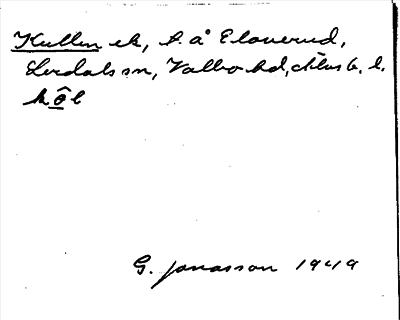 Kullen ek, h. å Elaverud,
Lerdals sn, Valbo hd, Älvsb. l.
kôl
G. Jonasson 1949